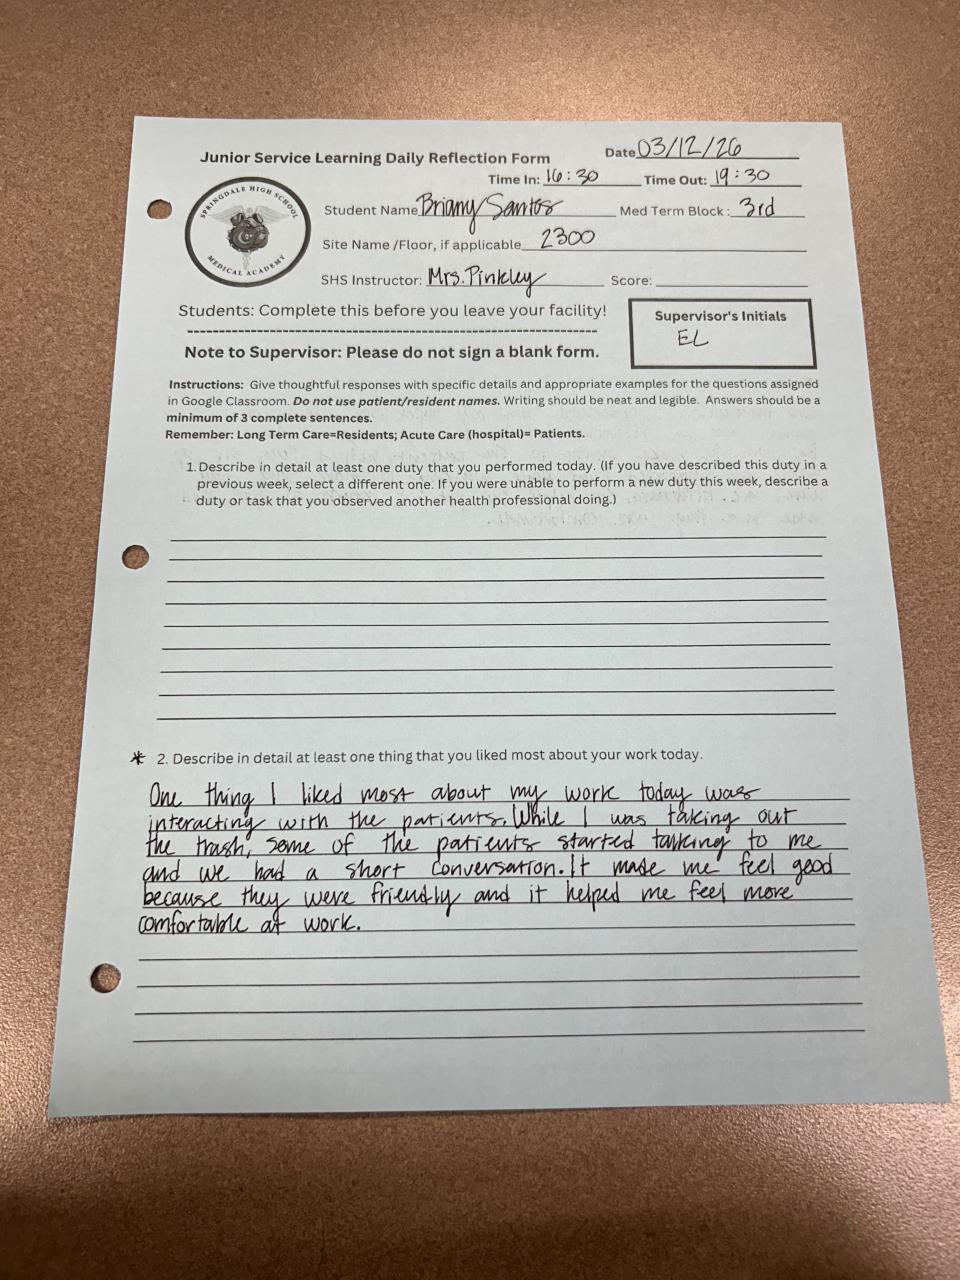 Junior Service Learning Daily Reflection Form
Date 03/12/26
Time In: 16:30 Time Out: 19:30
SPRINGDALE HIGH SCHOOL
MEDICAL ACADEMY
Student Name Briany Santos Med Term Block: 3rd
Site Name /Floor, if applicable 2300
SHS Instructor: Mrs. Pinkley Score:
Students: Complete this before you leave your facility!
Supervisor's Initials
EL
Note to Supervisor: Please do not sign a blank form.
Instructions: Give thoughtful responses with specific details and appropriate examples for the questions assigned
in Google Classroom. Do not use patient/resident names. Writing should be neat and legible. Answers should be a
minimum of 3 complete sentences.
Remember: Long Term Care=Residents; Acute Care (hospital)= Patients.
1. Describe in detail at least one duty that you performed today. (If you have described this duty in a
previous week, select a different one. If you were unable to perform a new duty this week, describe a
duty or task that you observed another health professional doing.)
* 2. Describe in detail at least one thing that you liked most about your work today.
One thing I liked most about my work today was
interacting with the patients. While I was taking out
the trash, some of the patients started talking to me
and we had a short conversation. It made me feel good
because they were friendly and it helped me feel more
comfortable at work.